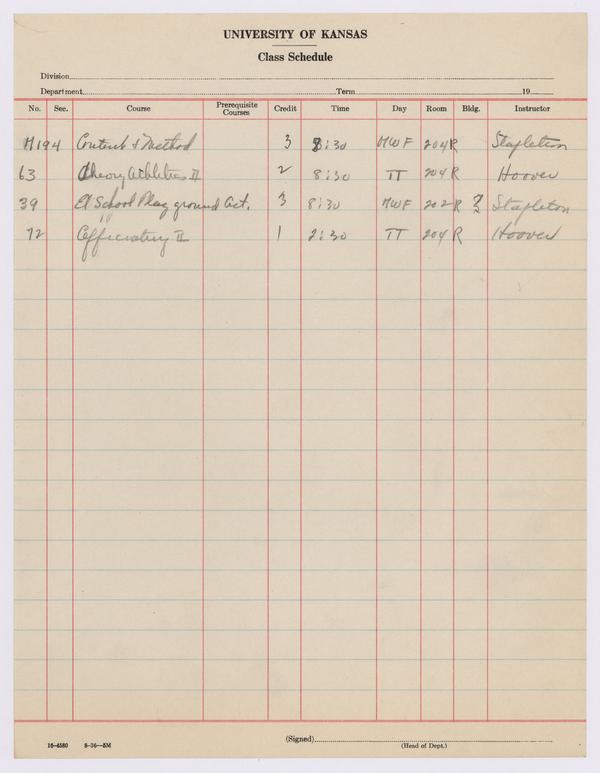 UNIVERSITY OF KANSAS
Class Schedule
Division
Department Term 19
No. Sec. Course Prerequisite Courses Credit Time Day Room Bldg. Instructor
M194 Content & Method 3 8:30 MWF 204 R Stapleton
63 Theory Athletics II 2 8:30 TT 204 R Hoover
39 El School Play ground Act. 3 8:30 MWF 202 R ? Stapleton
72 Officiating II 1 2:30 TT 204 R Hoover
(Signed)
16-4580 8-36—5M (Head of Dept.)